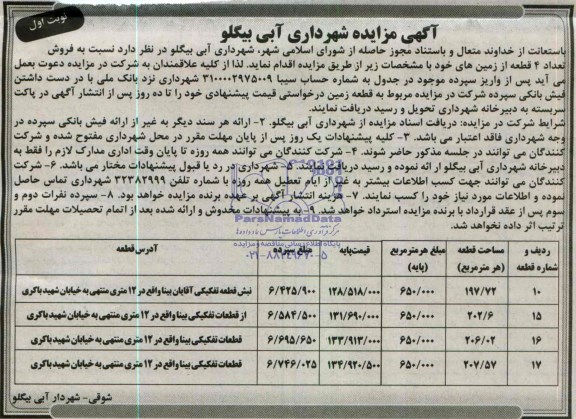 نوبت اول
آگهی مزایده شهرداری آبی بیگلو
باستعانت از خداوند متعال و باستناد مجوز حاصله از شورای اسلامی شهر، شهرداری آبی بیگلو در نظر دارد نسبت به فروش
تعداد ۴ قطعه از زمین های خود با مشخصات زیر از طریق مزایده اقدام نماید. لذا از کلیه علاقمندان به شرکت در مزایده دعوت بعمل
می آید پس از واریز سپرده موجود در جدول به شماره حساب سیبا ۳۱۰۰۰۰۲۹۷۵۰۰۹ شهرداری نزد بانک ملی با در دست داشتن
فیش بانکی سپرده شرکت در مزایده مربوط به قطعه زمین درخواستی قیمت پیشنهادی خود را تا ده روز پس از انتشار آگهی در پاکت
سربسته به دبیرخانه شهرداری تحویل و رسید دریافت نمایند.
شرایط شرکت در مزایده: دریافت اسناد مزایده از شهرداری آبی بیگلو. ۲- ارائه هر سند دیگر به غیر از ارائه فیش بانکی سپرده در
وجه شهرداری فاقد اعتبار می باشد. ۳- کلیه پیشنهادات یک روز پس از پایان مهلت مقرر در محل شهرداری مفتوح شده و شرکت
کنندگان می توانند در جلسه مذکور حاضر شوند. ۴- شرکت کنندگان می توانند همه روزه تا پایان وقت اداری مدارک لازم را فقط به
دبیرخانه شهرداری آبی بیگلو ارائه نموده و رسید دریافت نمایند. ۵- شهرداری در رد یا قبول پیشنهادات مختار می باشد. ۶- شرکت
کنندگان می توانند جهت کسب اطلاعات بیشتر به غیر از ایام تعطیل همه روزه با شماره تلفن ۳۲۳۸۲۹۹۹ شهرداری تماس حاصل
نموده و اطلاعات مورد نیاز خود را کسب نمایند. ۷- هزینه انتشار آگهی بر عهده برنده مزایده خواهد بود. ۸- سپرده نفرات دوم و
سوم پس از عقد قرارداد با برنده مزایده استرداد خواهد شد. ۹- به پیشنهادات مخدوش و ارائه شده بعد از اتمام تحصیلات مهلت مقرر
ترتیب اثر داده نخواهد شد.
ParsNamadData
پایگاه اطلاع رسانی مناقصه و مزایده
ردیف و شماره قطعه | مساحت قطعه (هر مترمربع) | مبلغ هر مترمربع (پایه) | قیمت پایه | مبلغ سپرده | آدرس قطعه
۱۰ | ۱۹۷/۷۲ | ۶۵۰/۰۰۰ | ۱۲۸/۵۱۸/۰۰۰ | ۶/۴۲۵/۹۰۰ | نبش قطعه تفکیکی آقایان بینا واقع در ۱۲ متری منتهی به خیابان شهید باکری
۱۵ | ۲۰۲/۶ | ۶۵۰/۰۰۰ | ۱۳۱/۶۹۰/۰۰۰ | ۶/۵۸۴/۵۰۰ | از قطعات تفکیکی بینا واقع در ۱۲ متری منتهی به خیابان شهید باکری
۱۶ | ۲۰۶/۰۲ | ۶۵۰/۰۰۰ | ۱۳۳/۹۱۳/۰۰۰ | ۶/۶۹۵/۶۵۰ | قطعات تفکیکی بینا واقع در ۱۲ متری منتهی به خیابان شهید باکری
۱۷ | ۲۰۷/۵۷ | ۶۵۰/۰۰۰ | ۱۳۴/۹۲۰/۵۰۰ | ۶/۷۴۶/۰۲۵ | قطعات تفکیکی بینا واقع در ۱۲ متری منتهی به خیابان شهید باکری
شوقی- شهردار آبی بیگلو